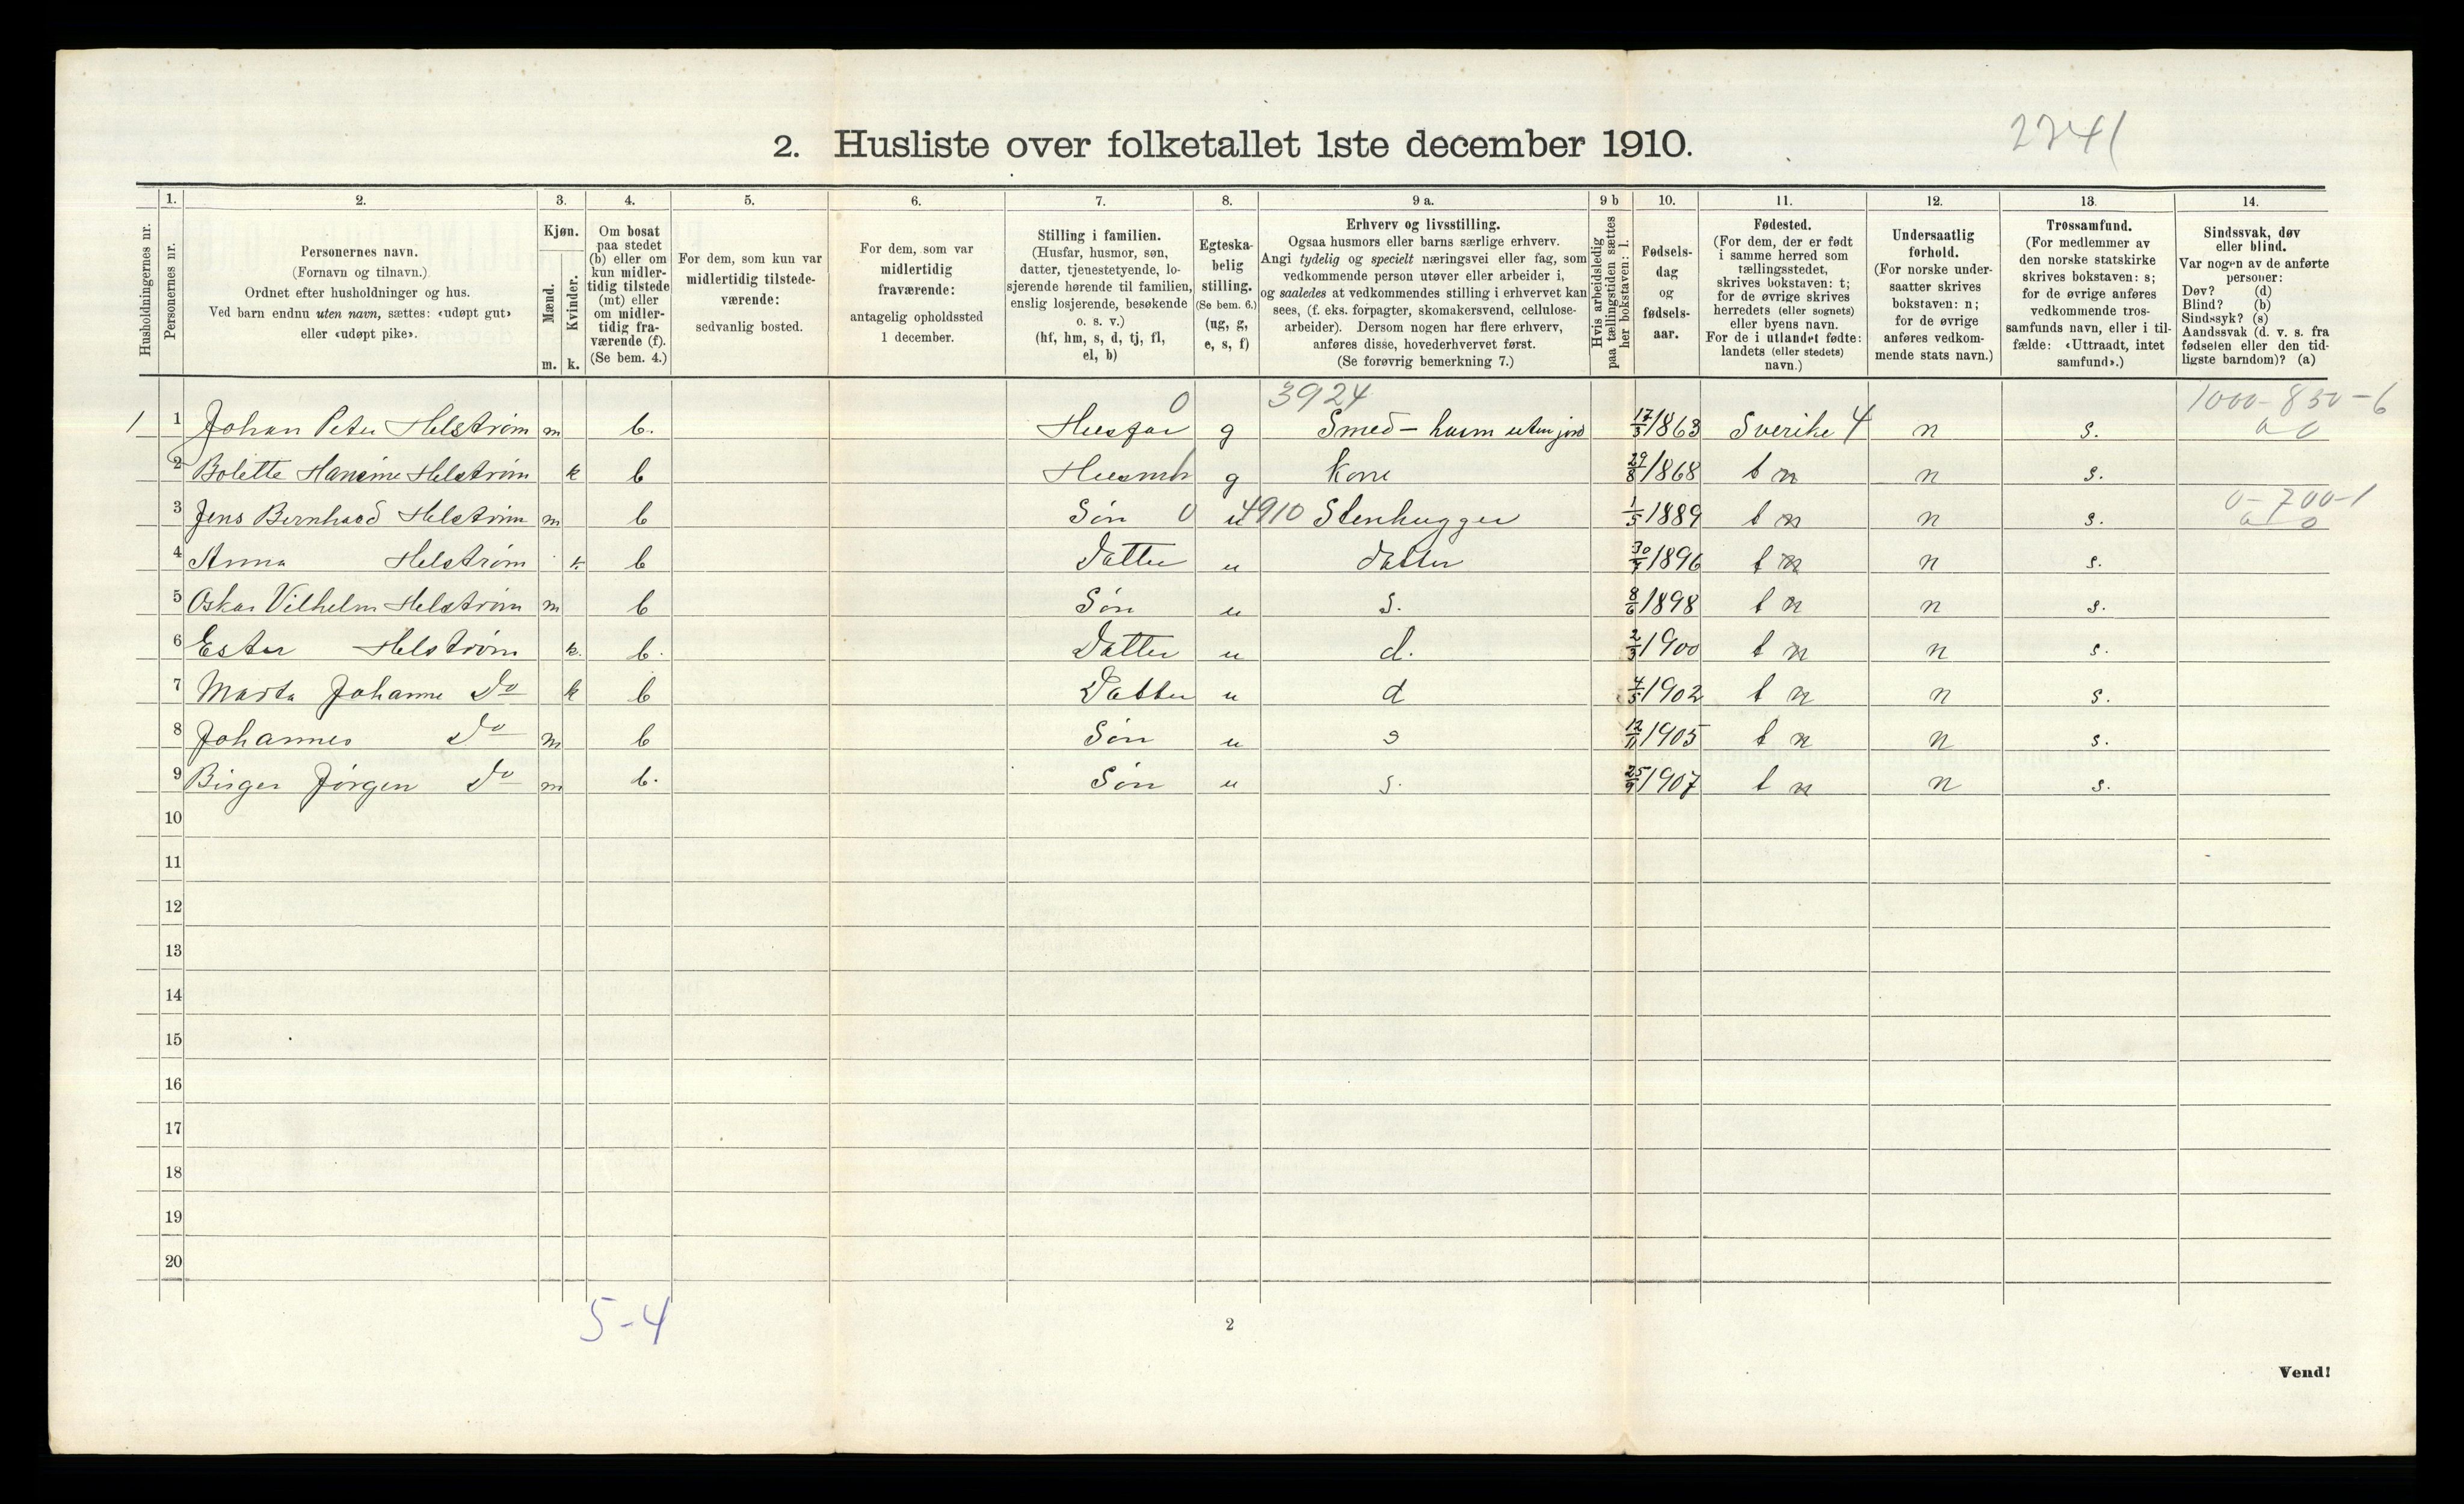 2. Husliste over folketallet 1ste december 1910.
2241
1. 2. 3. 4. 5. 6. 7. 8. 9 a. 9 b 10. 11. 12. 13. 14.
Husholdningernes nr.
Personernes nr.
Personernes navn.
(Fornavn og tilnavn.)
Ordnet efter husholdninger og hus.
Ved barn endnu uten navn, sættes: «udøpt gut»
eller «udøpt pike».
Kjøn.
Mænd.
Kvinder.
m. k.
Om bosat
paa stedet
(b) eller om
kun midler-
tidig tilstede
(mt) eller
om midler-
tidig fra-
værende (f).
(Se bem. 4.)
For dem, som kun var
midlertidig tilstede-
værende:
sedvanlig bosted.
For dem, som var
midlertidig
fraværende:
antagelig opholdssted
1 december.
Stilling i familien.
(Husfar, husmor, søn,
datter, tjenestetyende, lo-
sjerende hørende til familien,
enslig losjerende, besøkende
o. s. v.)
(hf, hm, s, d, tj, fl,
el, b)
Egteska-
belig
stilling.
(Se bem. 6.)
(ug, g,
e, s, f)
Erhverv og livsstilling.
Ogsaa husmors eller barns særlige erhverv.
Angi tydelig og specielt næringsvei eller fag, som
vedkommende person utøver eller arbeider i,
og saaledes at vedkommendes stilling i erhvervet kan
sees, (f. eks. forpagter, skomakersvend, cellulose-
arbeider). Dersom nogen har flere erhverv,
anføres disse, hovederhvervet først.
(Se forøvrig bemerkning 7.)
Hvis arbeidsledig
paa tællingstiden sættes
her bokstaven: l.
Fødsels-
dag
og
fødsels-
aar.
Fødested.
(For dem, der er født
i samme herred som
tællingsstedet,
skrives bokstaven: t;
for de øvrige skrives
herredets (eller sognets)
eller byens navn.
For de i utlandet fødte:
landets (eller stedets)
navn.)
Undersaatlig
forhold.
(For norske under-
saatter skrives
bokstaven: n;
for de øvrige
anføres vedkom-
mende stats navn.)
Trossamfund.
(For medlemmer av
den norske statskirke
skrives bokstaven: s;
for de øvrige anføres
vedkommende tros-
samfunds navn, eller i til-
fælde: «Uttraadt, intet
samfund».)
Sindssvak, døv
eller blind.
Var nogen av de anførte
personer:
Døv? (d)
Blind? (b)
Sindssyk? (s)
Aandssvak (d. v. s. fra
fødselen eller den tid-
ligste barndom)? (a)
0 3924 1000-850-6
1 1 Johan Peter Helstrøm m b. Husfar g Smed - husm uten jord 17/3 1863 Sverike 4 n s. 0
2 Bolette Hansine Helstrøm k b Husmor g kone 29/8 1868 t n n s.
0-700-1
3 Jens Bernhard Helstrøm m b Søn 0 u 4910 Stenhugger 1/5 1889 t n n s. 0
4 Anna Helstrøm k. b Datter u datter 30/7 1896 t n n s.
5 Oskar Vilhelm Helstrøm m b Søn u s. 8/6 1898 t n n s.
6 Ester Helstrøm k. b. Datter u d. 2/3 1900 t n n s.
7 Marta Johanne Do k b Datter u d 4/5 1902 t n n s.
8 Johannes Do m b Søn u s 12/11 1905 t n n s.
9 Birger Jørgen Do m b. Søn u s. 25/9 1907 t n n s.
10
11
12
13
14
15
16
17
18
19
20
5-4
2
Vend!